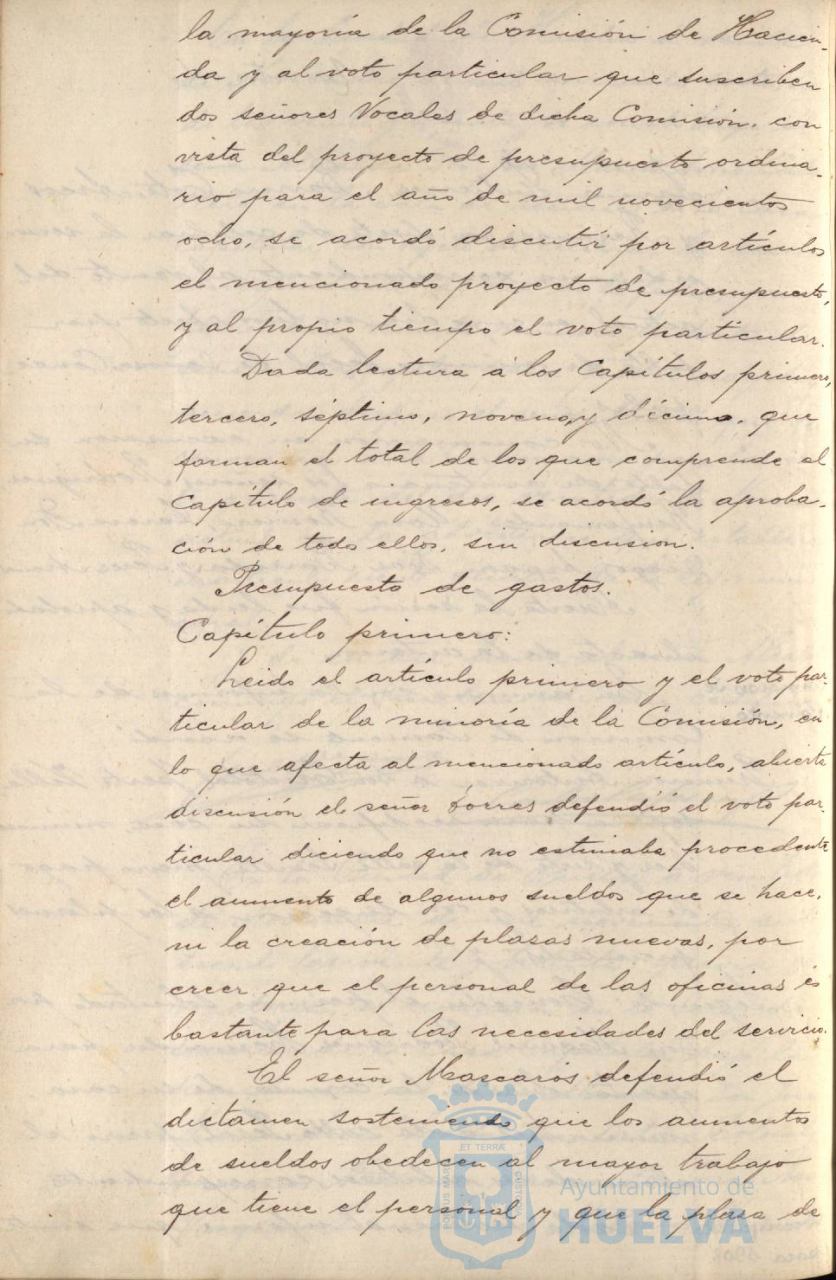 la mayoría de la Comisión de Hacien-
da y al voto particular que suscriben
dos señores Vocales de dicha Comisión, con
vista del proyecto de presupuesto ordina-
rio para el año de mil novecientos
ocho, se acordó discutir por artículos
el mencionado proyecto de presupuesto,
y al propio tiempo el voto particular.
Dada lectura á los Capítulos primero,
tercero, séptimo, noveno, y décimo, que
forman el total de los que comprende el
Capítulo de ingresos, se acordó la aproba-
ción de todo ellos, sin discusion.
Presupuesto de gastos.
Capítulo primero:
Leido el artículo primero y el voto par-
ticular de la minoría de la Comisión, en
lo que afecta al mencionado artículo, abierta
discusión el señor Torres defendió el voto par-
ticular diciendo que no estimaba procedente
el aumento de algunos sueldos que se hace,
ni la creación de plasas nuevas, por
creer que el personal de las oficinas és
bastante para las necesidades del servicio.
El señor Mascarós defendió el
dictámen sosteniendo que los aumentos
de sueldos obedecen al mayor trabajo
que tiene el personal y que la plasa de
Ayuntamiento de
HUELVA